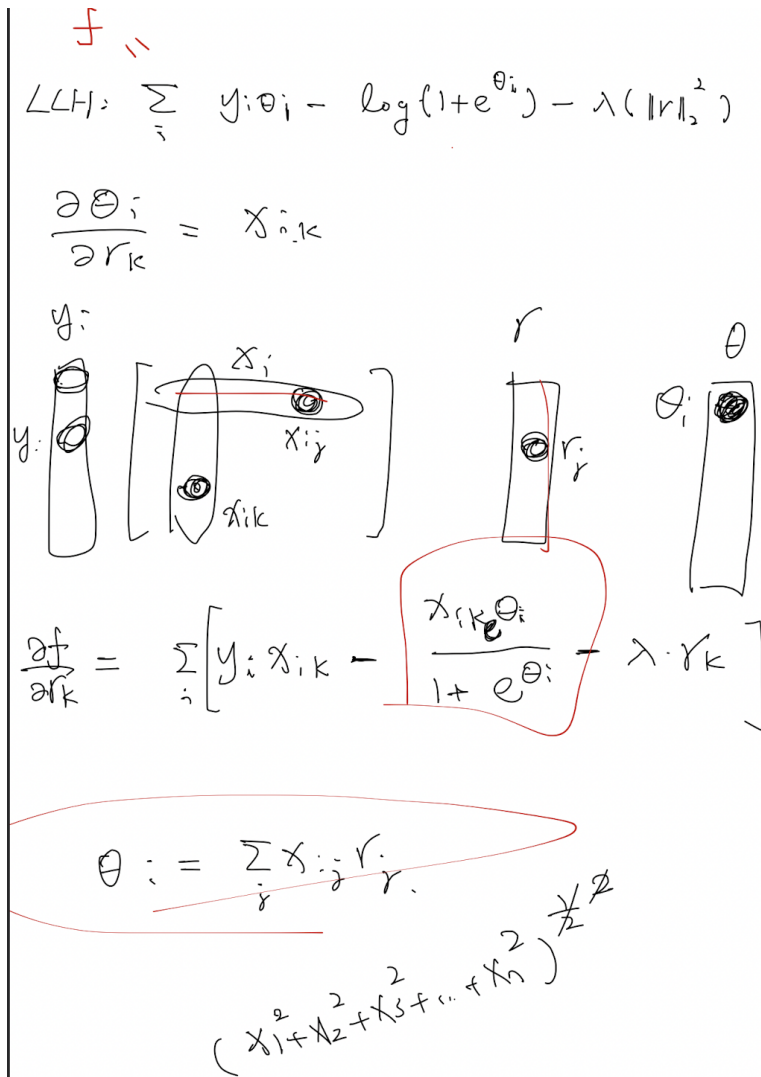 f "
LLH: Σ_i y_iθ_i - log(1+e^{θ_i}) - λ(‖r‖_2^2)
∂θ_i/∂r_k = x_{ik}
y_i r θ
x_i θ_i
y_i x_{ij} r_j
x_{ik}
∂f/∂r_k = Σ_i [ y_i x_{ik} - x_{ik} e^{θ_i}/(1+e^{θ_i}) - λ·r_k ]
θ_i = Σ_j x_{ij} r_j.
(x_1^2+x_2^2+x_3^2+...+x_n^2)^{1/2 2}